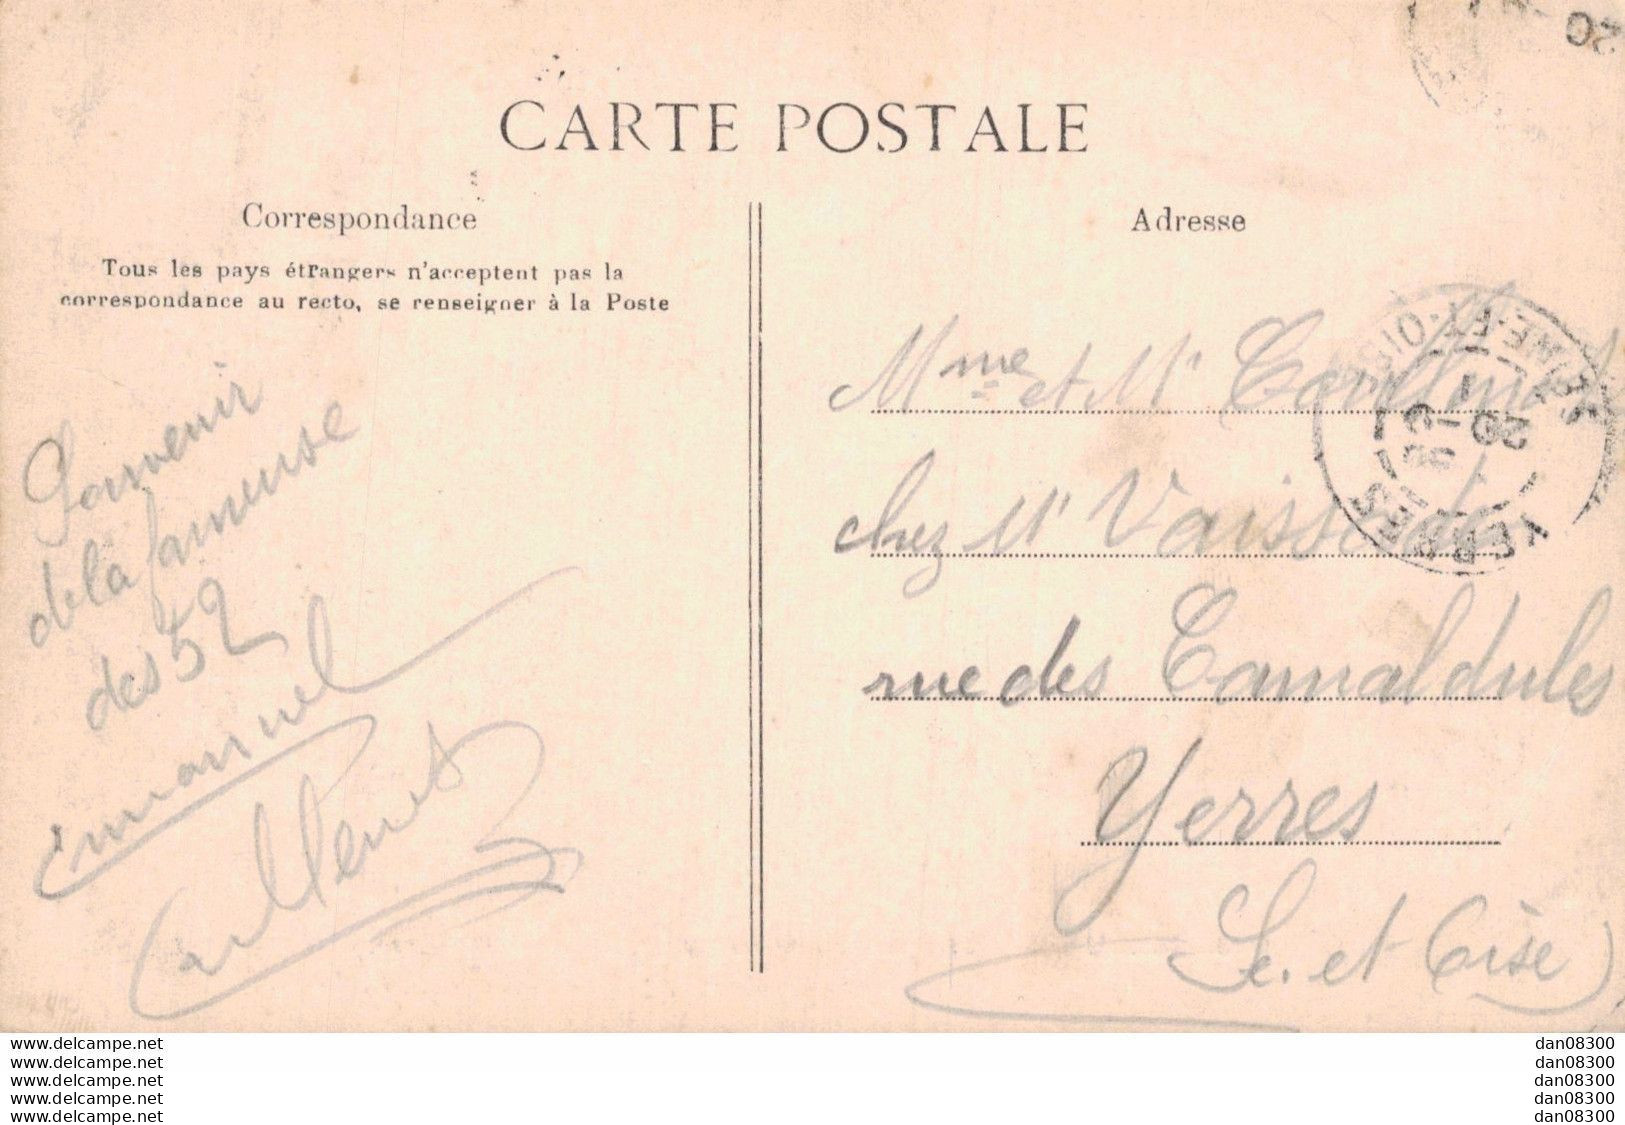 CARTE POSTALE
Correspondance
Tous les pays étrangers n'acceptent pas la
correspondance au recto, se renseigner à la Poste
Souvenir
de la fameuse
des 52
Emmanuel
Adresse
Mme et Mr
chez Mr
rue des Camaldules
Yerres
Se. et Oise
YERRES
SEINE-ET-OISE
20
20
www.delcampe.net
www.delcampe.net
www.delcampe.net
www.delcampe.net
www.delcampe.net
dan08300
dan08300
dan08300
dan08300
dan08300